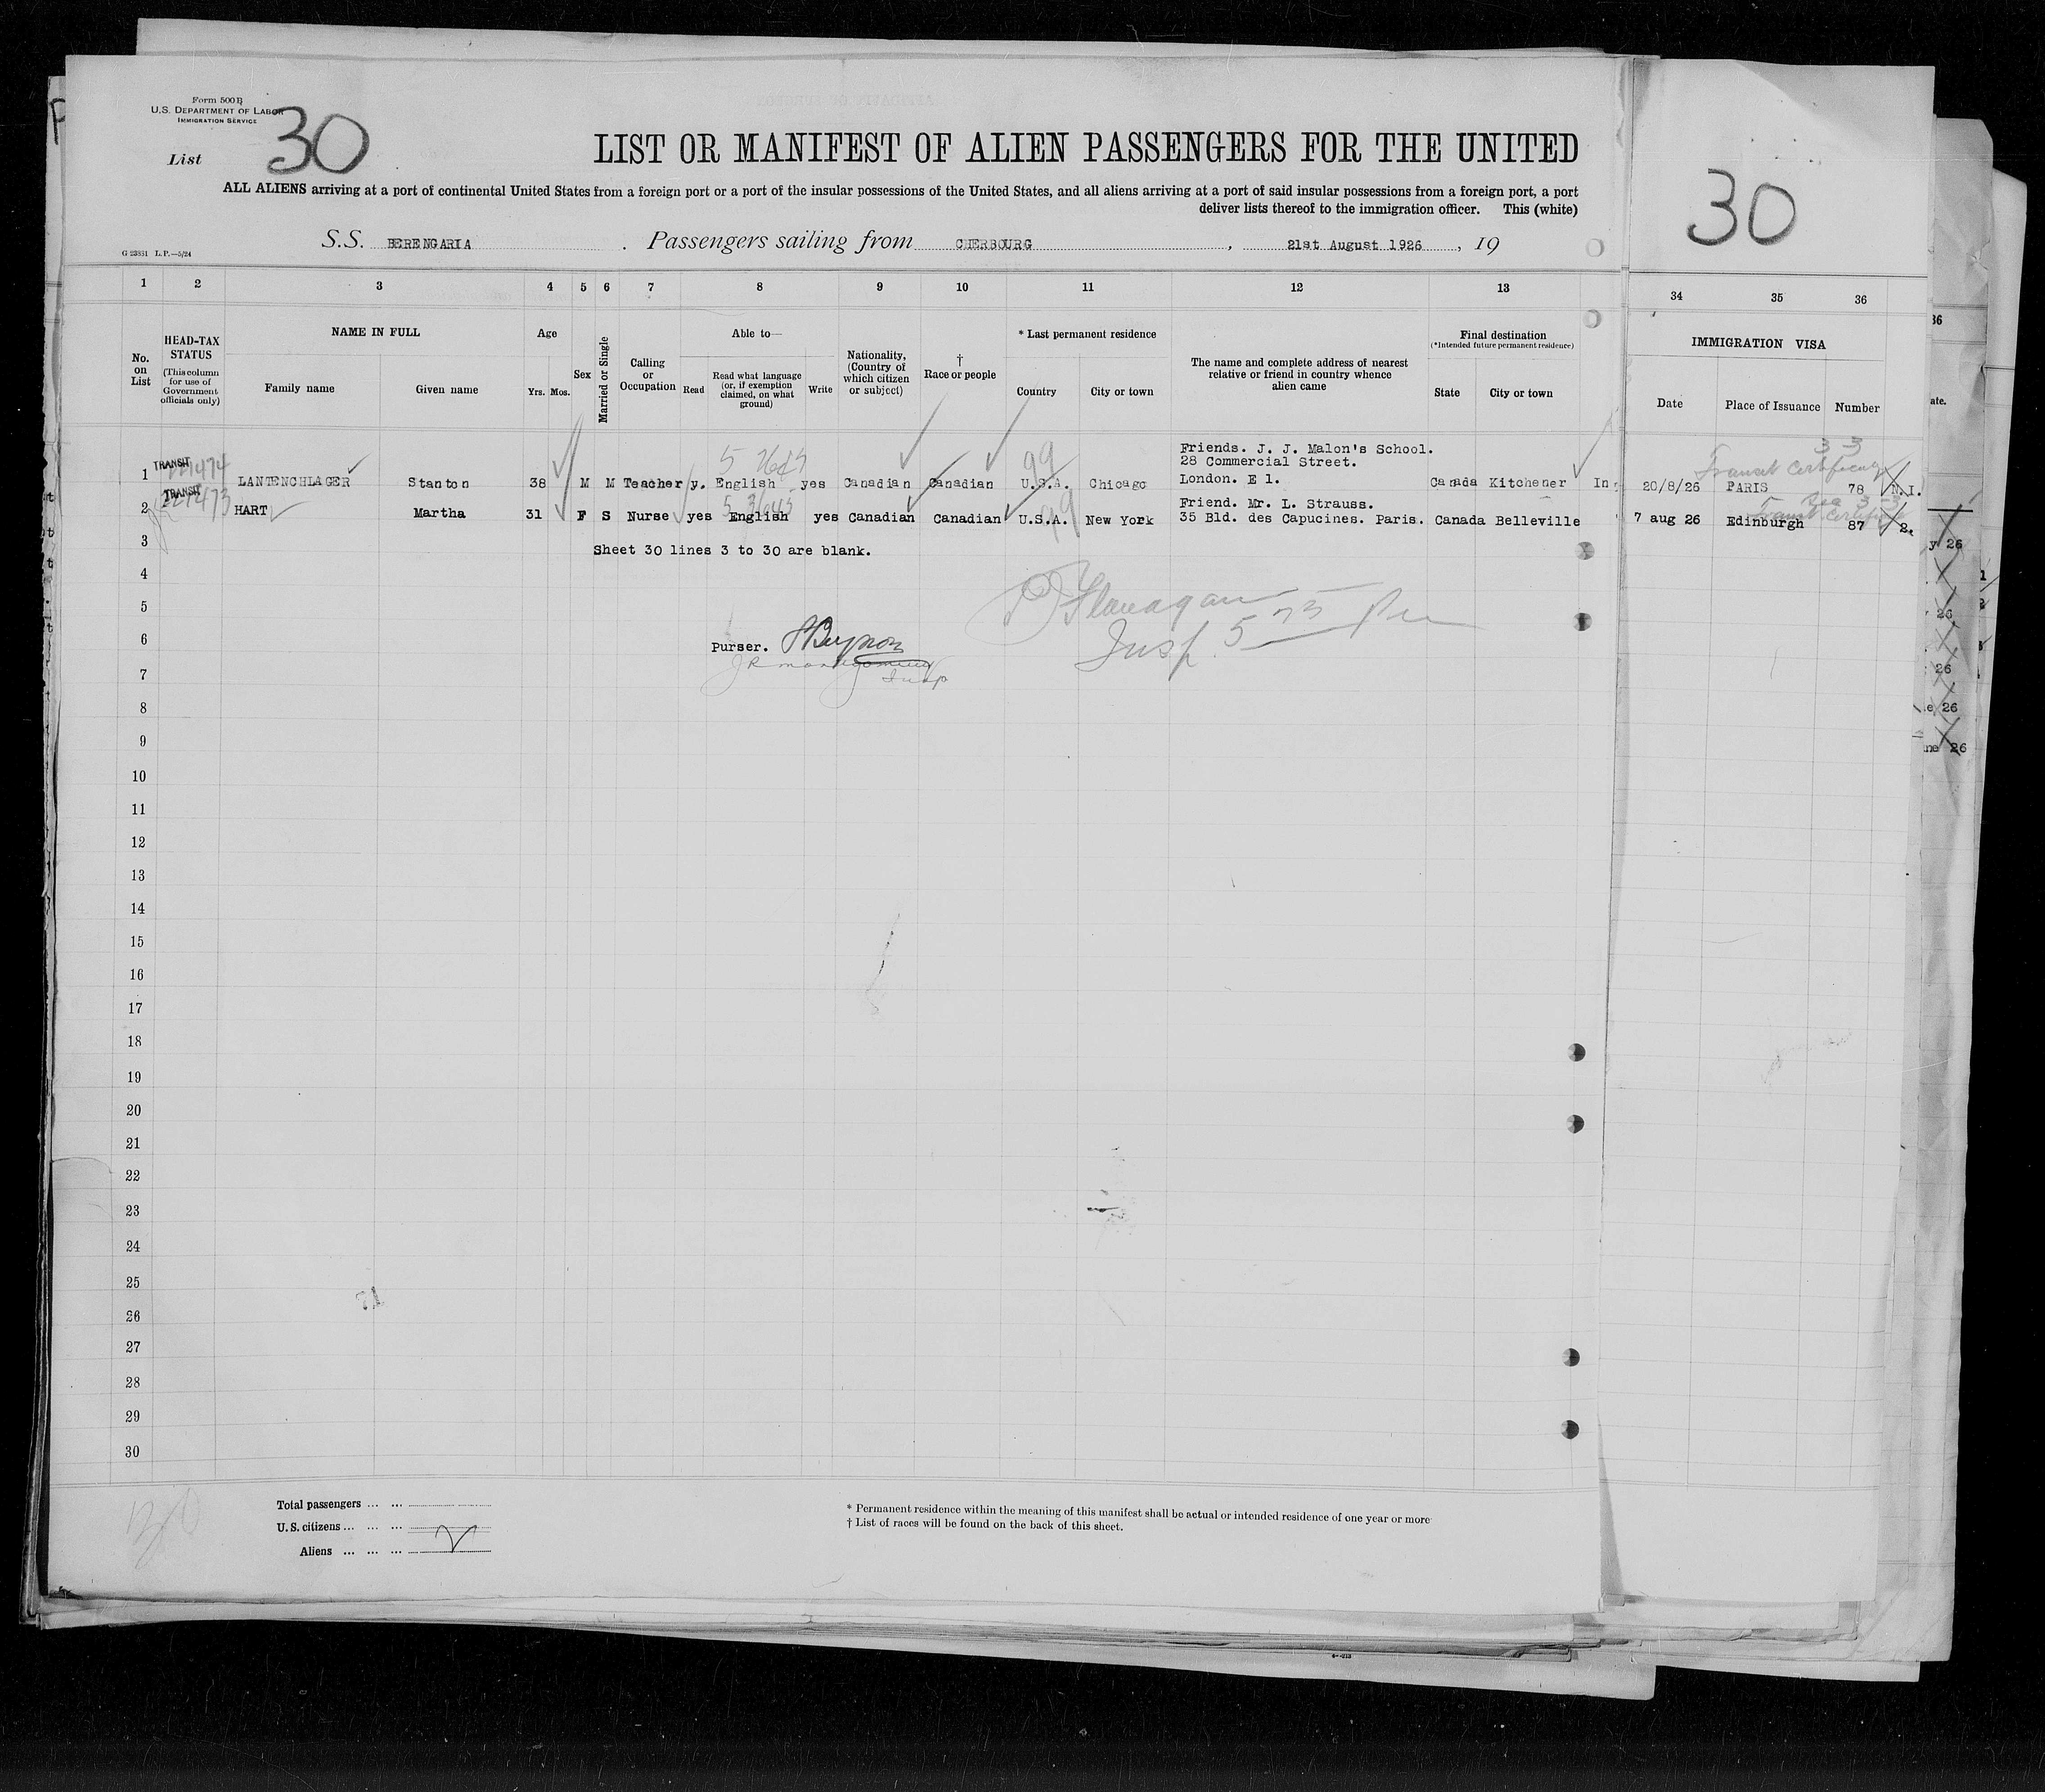 Form 500 B
U.S. DEPARTMENT OF LABOR
IMMIGRATION SERVICE
List 30
LIST OR MANIFEST OF ALIEN PASSENGERS FOR THE UNITED
ALL ALIENS arriving at a port of continental United States from a foreign port or a port of the insular possessions of the United States, and all aliens arriving at a port of said insular possessions from a foreign port, a port
deliver lists thereof to the immigration officer. This (white)
S.S. BERENGARIA . Passengers sailing from CHERBOURG , 21st August 1926 , 19
G 23851 L.P.—5/24
30
1 2 3 4 5 6 7 8 9 10 11 12 13 34 35 36
No. on List
HEAD-TAX STATUS (This column for use of Government officials only)
NAME IN FULL
Family name Given name
Age
Yrs. Mos.
Sex
Married or Single
Calling or Occupation
Able to—
Read Read what language (or, if exemption claimed, on what ground) Write
Nationality, (Country of which citizen or subject)
† Race or people
* Last permanent residence
Country City or town
The name and complete address of nearest relative or friend in country whence alien came
Final destination
(*Intended future permanent residence)
State City or town
IMMIGRATION VISA
Date Place of Issuance Number
36
ate.
1 TRANSIT LANTENCHLAGER Stanton 38 M M Teacher y. English yes Canadian Canadian U.S.A. Chicago Friends. J. J. Malon's School. 28 Commercial Street. London. E 1. Canada Kitchener 20/8/26 PARIS 78 N.I.
99
Transit Certificate
2 TRANSIT HART Martha 31 F S Nurse yes English yes Canadian Canadian U.S.A. New York Friend. Mr. L. Strauss. 35 Bld. des Capucines. Paris. Canada Belleville 7 aug 26 Edinburgh 87 2.
99
3
Sheet 30 lines 3 to 30 are blank.
4
5
6
Purser.
Flanagan
Insp.
JR Montgomery
Insp
7
8
9
10
11
12
13
14
15
16
17
18
19
20
21
22
23
24
25
26
27
28
29
30
y 26
26
26
e 26
ne 26
Total passengers ... ...
U.S. citizens ... ... ...
Aliens ... ... ... 2
* Permanent residence within the meaning of this manifest shall be actual or intended residence of one year or more
† List of races will be found on the back of this sheet.